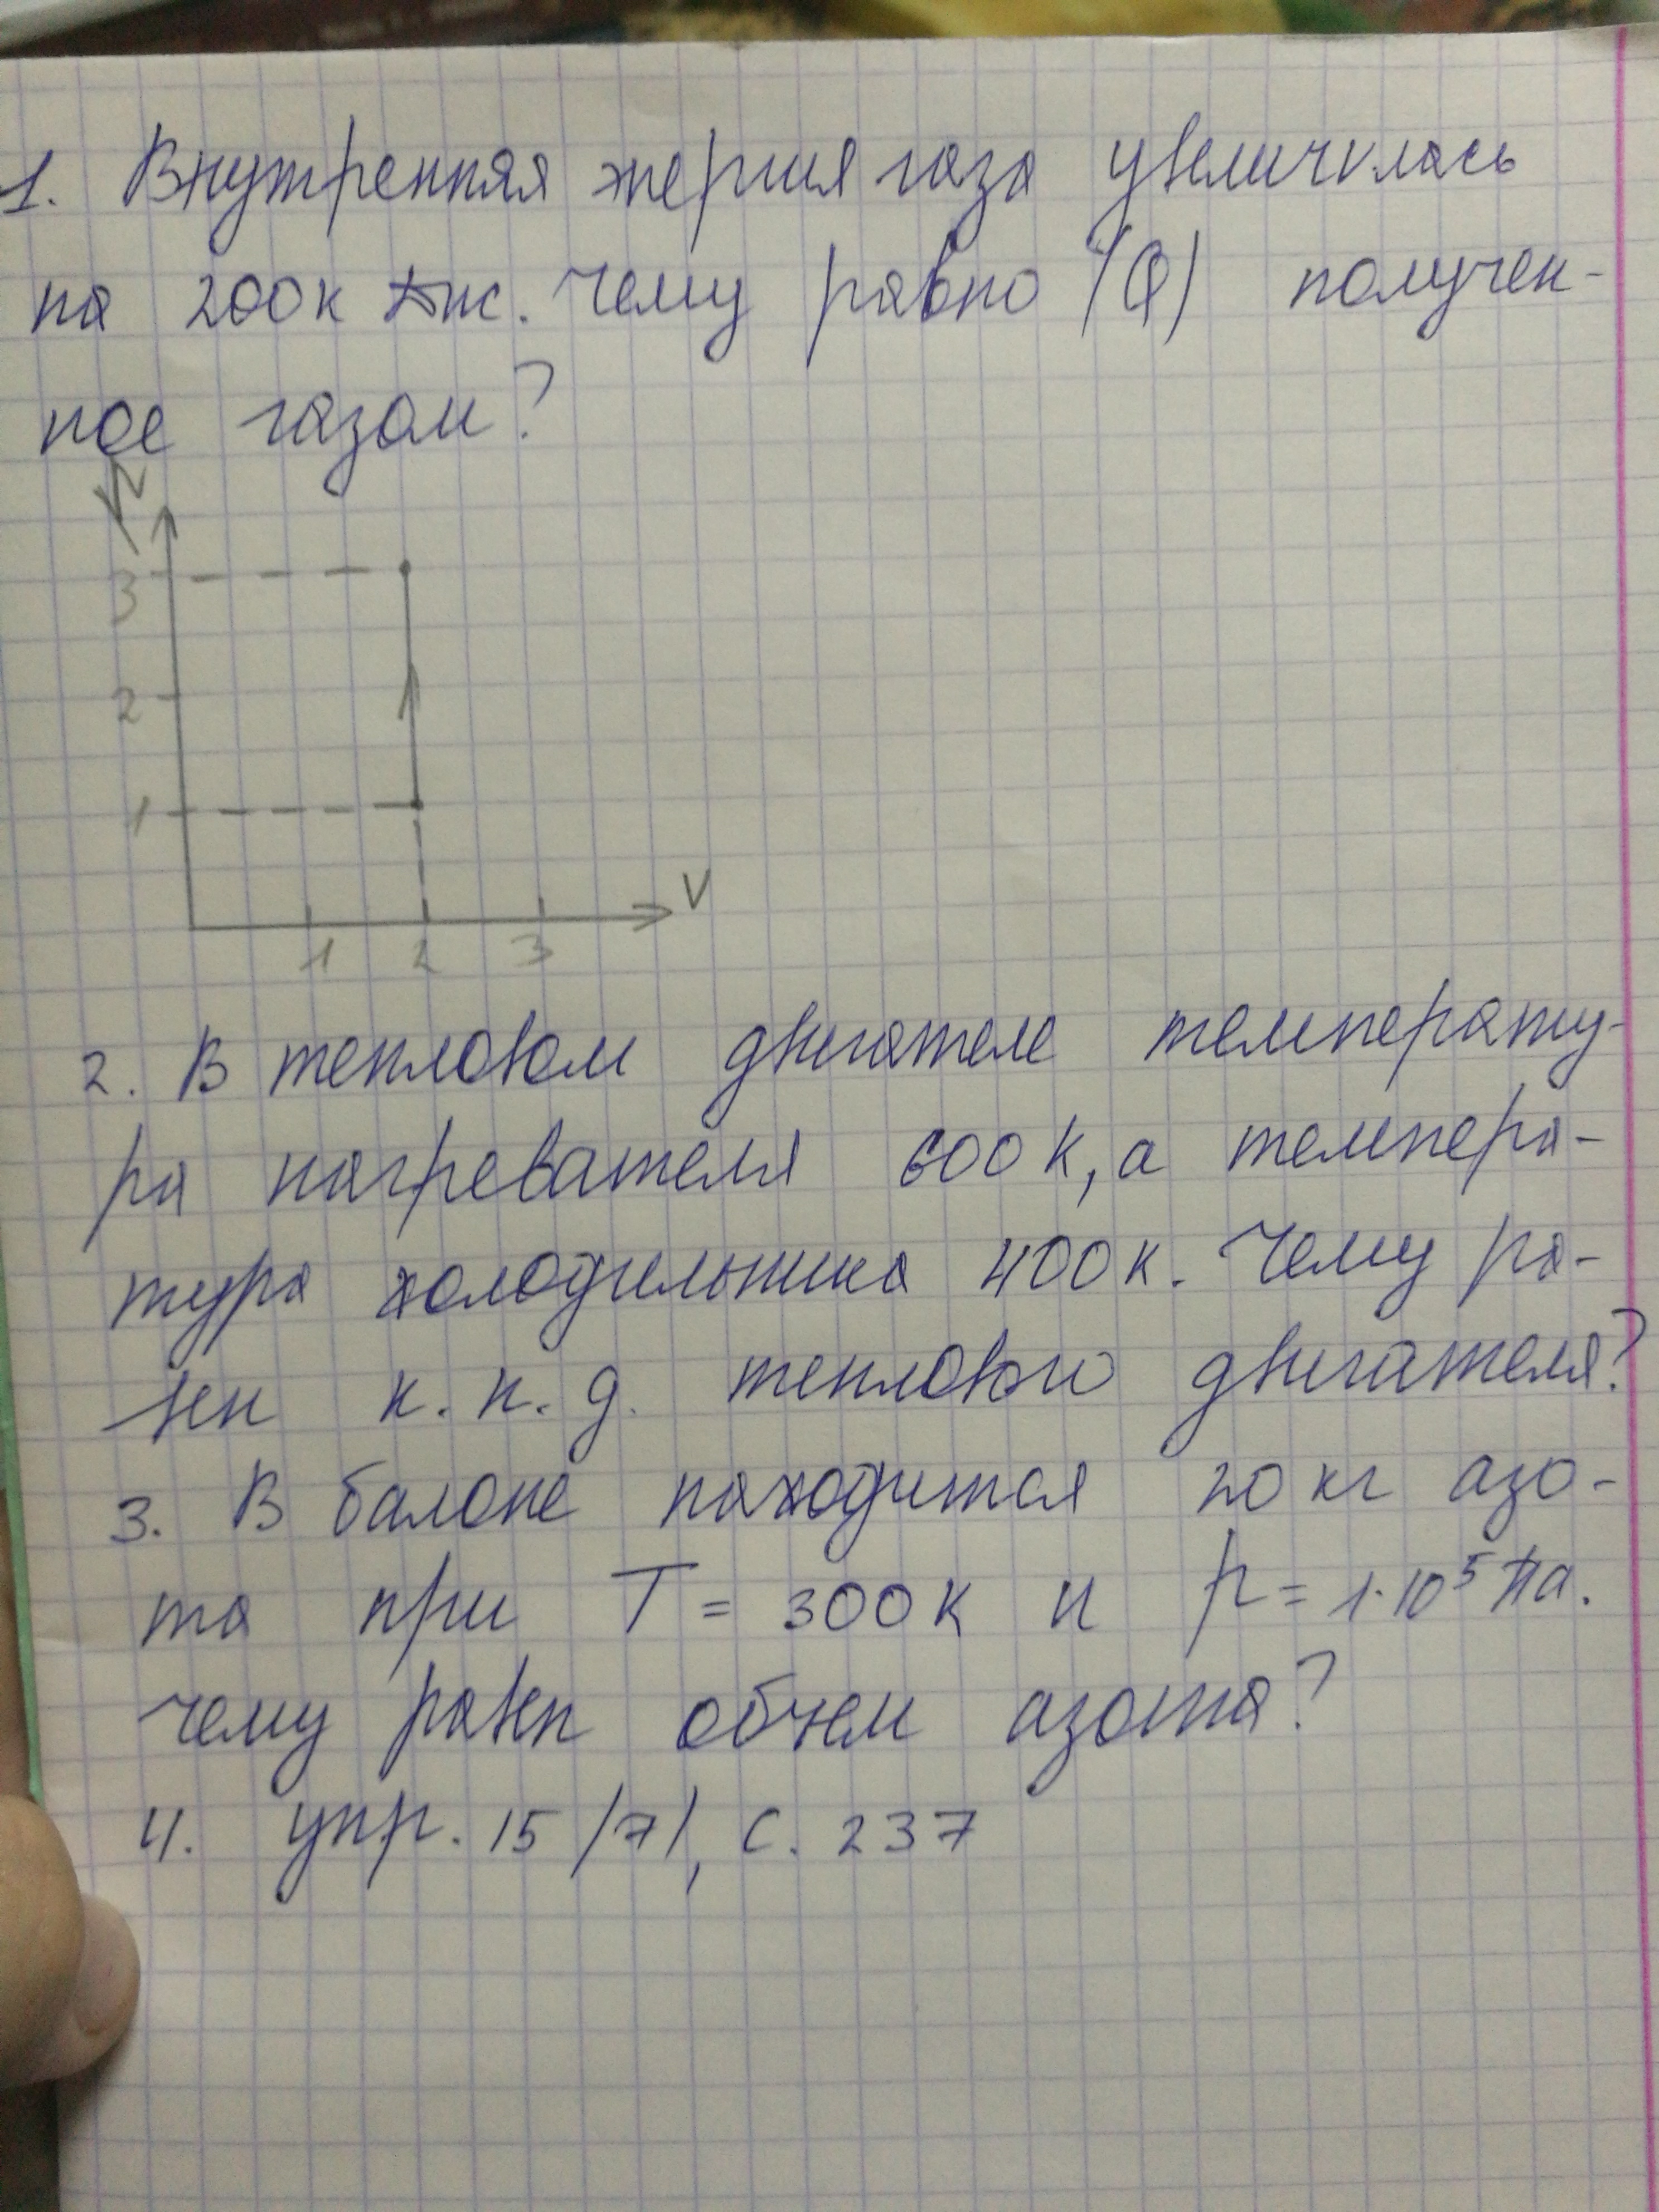 1. Внутренняя энергия газа увеличилась
на 200к Дж. Чему равно /Q/ получен-
ное газом?
P
3
2
1
V
1 2 3
2. В тепловом двигателе температу-
ра нагревателя 600К, а темпера-
тура холодильника 400К. Чему ра-
вен к.п.д. теплового двигателя?
3. В балоне находится 20 кг азо-
та при T = 300К и p = 1·10⁵ Па.
чему равен объем азота?
4. упр. 15 /7/, с. 237